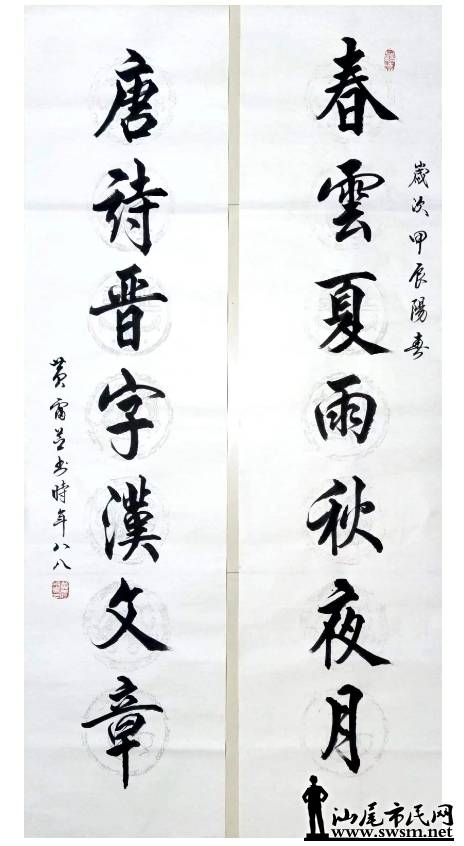 春雲夏雨秋夜月
歲次甲辰陽春
唐詩晋字漢文章
黄 書時年八八
汕尾市民网
www.swsm.net